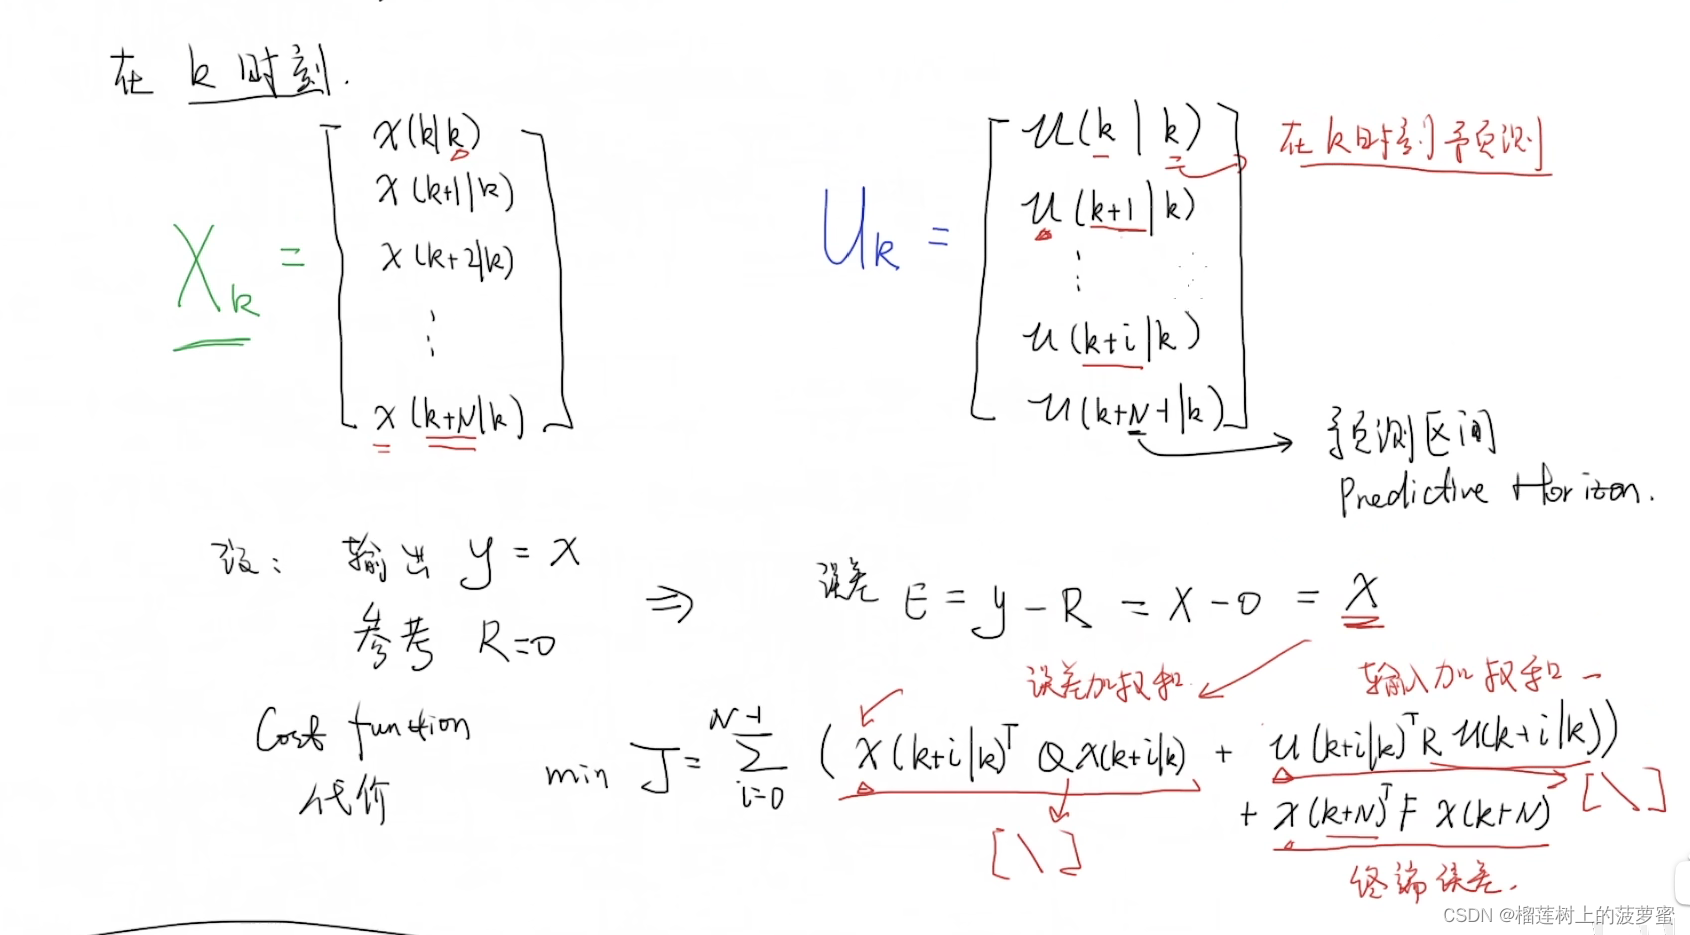 在 k 时刻.
X_k = [
x(k|k)
x(k+1|k)
x(k+2|k)
⋮
x(k+N|k)
]
U_k = [
u(k|k)
u(k+1|k)
⋮
u(k+i|k)
u(k+N-1|k)
]
在k时刻预测
预测区间
Predictive Horizon.
设: 输出 y = x
参考 R=0
⇒
误差 E = y - R = x - 0 = x
误差加权和
输入加权和
Cost function
代价
min J = \sum_{i=0}^{N-1} (x(k+i|k)^T Q x(k+i|k) + u(k+i|k)^T R u(k+i|k))
+ x(k+N)^T F x(k+N)
[\]
[\]
终端误差.
CSDN @榴莲树上的菠萝蜜